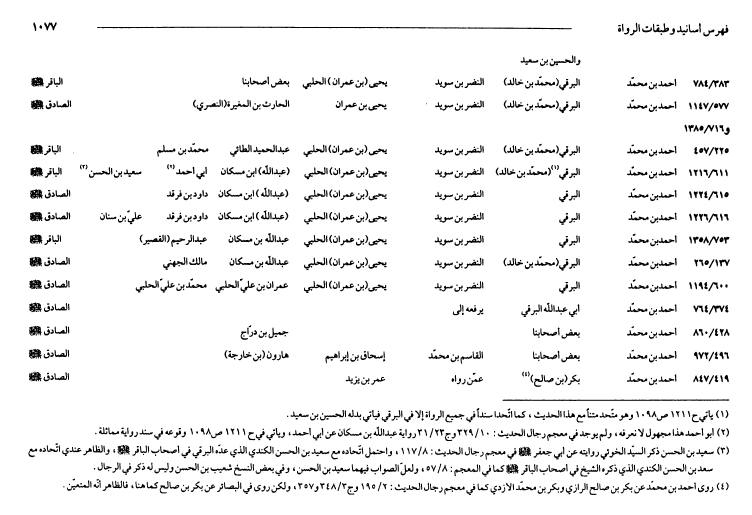 فهرس أسانيد وطبقات الرواة ١٠٧٧
والحسين بن سعيد
٧٨٤/٣٨٣ أحمد بن محمّد البرقي (محمّد بن خالد) النضر بن سويد يحيى (بن عمران) الحلبي بعض أصحابنا الباقر ﷺ
١١٤٧/٥٧٧ أحمد بن محمّد البرقي (محمّد بن خالد) النضر بن سويد يحيى بن عمران الحارث بن المغيرة (النصري) الصادق ﷺ
و١٣٨٥/٧١٦
٤٥٧/٢٢٥ أحمد بن محمّد البرقي (محمّد بن خالد) النضر بن سويد يحيى (بن عمران) الحلبي عبدالحميد الطائي محمّد بن مسلم الباقر ﷺ
١٢١٦/٦١١ أحمد بن محمّد البرقي (١) (محمّد بن خالد) النضر بن سويد يحيى (بن عمران) الحلبي (عبدالله) ابن مسكان أبي أحمد (٢) سعيد بن الحسن (٣) الباقر ﷺ
١٢٢٤/٦١٥ أحمد بن محمّد البرقي النضر بن سويد يحيى (بن عمران) الحلبي (عبدالله) ابن مسكان داود بن فرقد الصادق ﷺ
١٢٢٦/٦١٦ أحمد بن محمّد البرقي النضر بن سويد يحيى (بن عمران) الحلبي (عبدالله) ابن مسكان داود بن فرقد عليّ بن سنان الصادق ﷺ
١٣٥٨/٧٥٣ أحمد بن محمّد البرقي النضر بن سويد يحيى (بن عمران) الحلبي عبدالله بن مسكان عبدالرحيم (القصير) الباقر ﷺ
٢٦٥/١٣٧ أحمد بن محمّد البرقي (محمّد بن خالد) النضر بن سويد يحيى (بن عمران) الحلبي عبدالله بن مسكان مالك الجهني الصادق ﷺ
١١٩٤/٦٠٠ أحمد بن محمّد البرقي النضر بن سويد يحيى (بن عمران) الحلبي عمران بن عليّ الحلبي محمّد بن عليّ الحلبي الصادق ﷺ
٧٦٤/٣٧٤ أحمد بن محمّد أبي عبدالله البرقي يرفعه إلى الصادق ﷺ
٨٦٠/٤٢٨ أحمد بن محمّد بعض أصحابنا جميل بن درّاج الصادق ﷺ
٩٧٢/٤٩٦ أحمد بن محمّد بعض أصحابنا القاسم بن محمّد إسحاق بن إبراهيم هارون (بن خارجة) الصادق ﷺ
٨٤٧/٤١٩ أحمد بن محمّد بكر (بن صالح) (٤) عمّن رواه عمر بن يزيد الصادق ﷺ
(١) يأتي ح ١٢١١ ص ١٠٩٨ وهو متّحد متناً مع هذا الحديث ، كما اتّحدا سنداً في جميع الرواة إلا في البرقي فيأتي بدله الحسين بن سعيد .
(٢) أبو أحمد هذا مجهول لا نعرفه ، ولم يوجد في معجم رجال الحديث : ٣٢٩/١٠ وج ٣١/٢٣ رواية عبدالله بن مسكان عن أبي أحمد ، ويأتي في ح ١٢١١ ص ١٠٩٨ وقوعه في سند رواية مماثلة .
(٣) سعيد بن الحسن ذكر السيّد الخوئي روايته عن أبي جعفر ﷺ في معجم رجال الحديث : ١١٧/٨ ، واحتمل اتّحاده مع سعيد بن الحسن الكندي الذي عدّه البرقي في أصحاب الباقر ﷺ ، والظاهر عندي اتّحاده مع
سعد بن الحسن الكندي الذي ذكره الشيخ في أصحاب الباقر ﷺ كما في المعجم : ٥٧/٨ ، ولعلّ الصواب فيهما سعيد بن الحسن ، وفي بعض النسخ شعيب بن الحسن وليس له ذكر في الرجال .
(٤) روى أحمد بن محمّد عن بكر بن صالح الرازي وبكر بن محمّد الأزدي كما في معجم رجال الحديث : ١٩٥/٢ وج ٣٤٨/٣ و٣٥٧ ، ولكن روى في البصائر عن بكر بن صالح كما هنا ، فالظاهر أنّه المتعيّن .